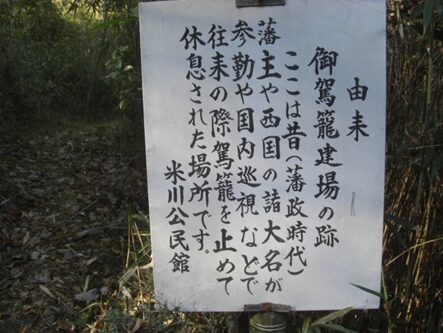 由来
御駕籠建場の跡
ここは昔(藩政時代)
藩主や西国の諸大名が
参勤や国内巡視などで
往来の際駕籠を止めて
休息された場所です。
米川公民館